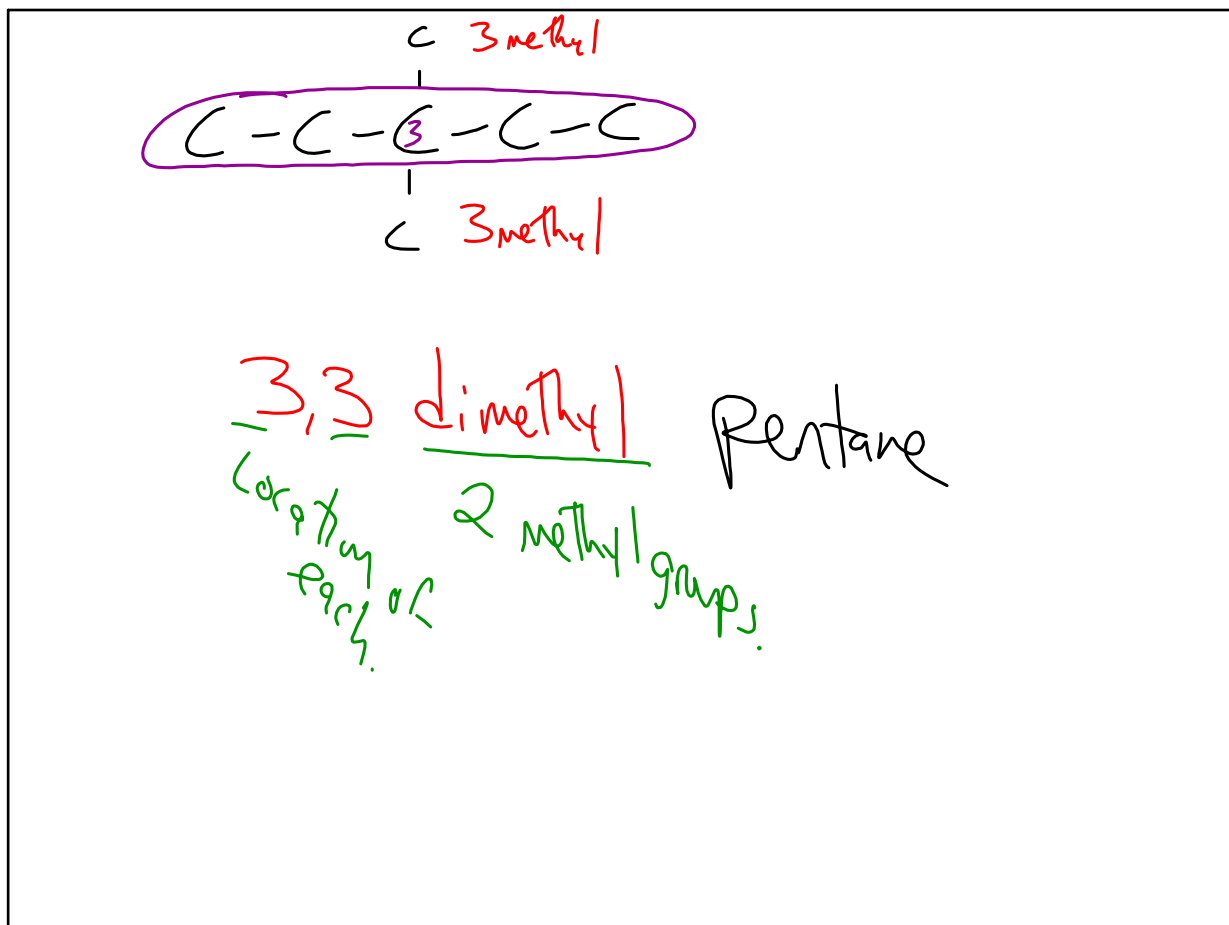 C 3 methyl
C - C - C - C - C
3
C 3 methyl
3,3 dimethyl Pentane
Location of each.
2 methyl groups.